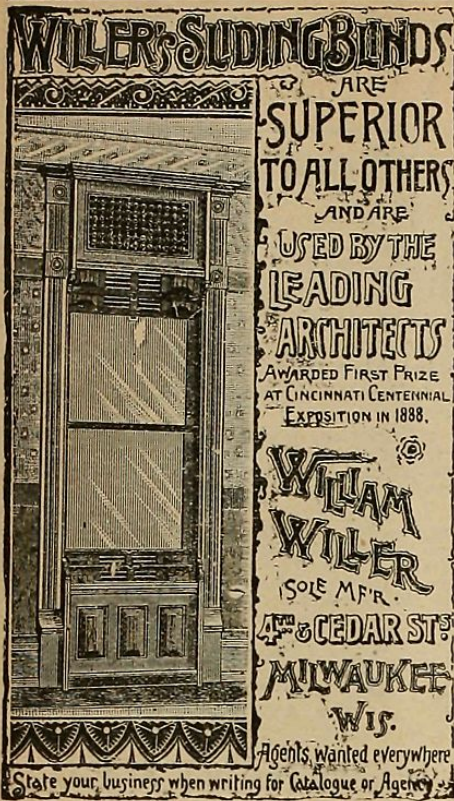 WILLER'S SLIDING BLINDS
ARE
SUPERIOR
TO ALL OTHERS
AND ARE
USED BY THE
LEADING
ARCHITECTS
AWARDED FIRST PRIZE
AT CINCINNATI CENTENNIAL
EXPOSITION IN 1888.
WILLIAM
WILLER
SOLE MF'R.
4TH & CEDAR STS.
MILWAUKEE
WIS.
Agents, wanted everywhere
State your business when writing for Catalogue or Agency.